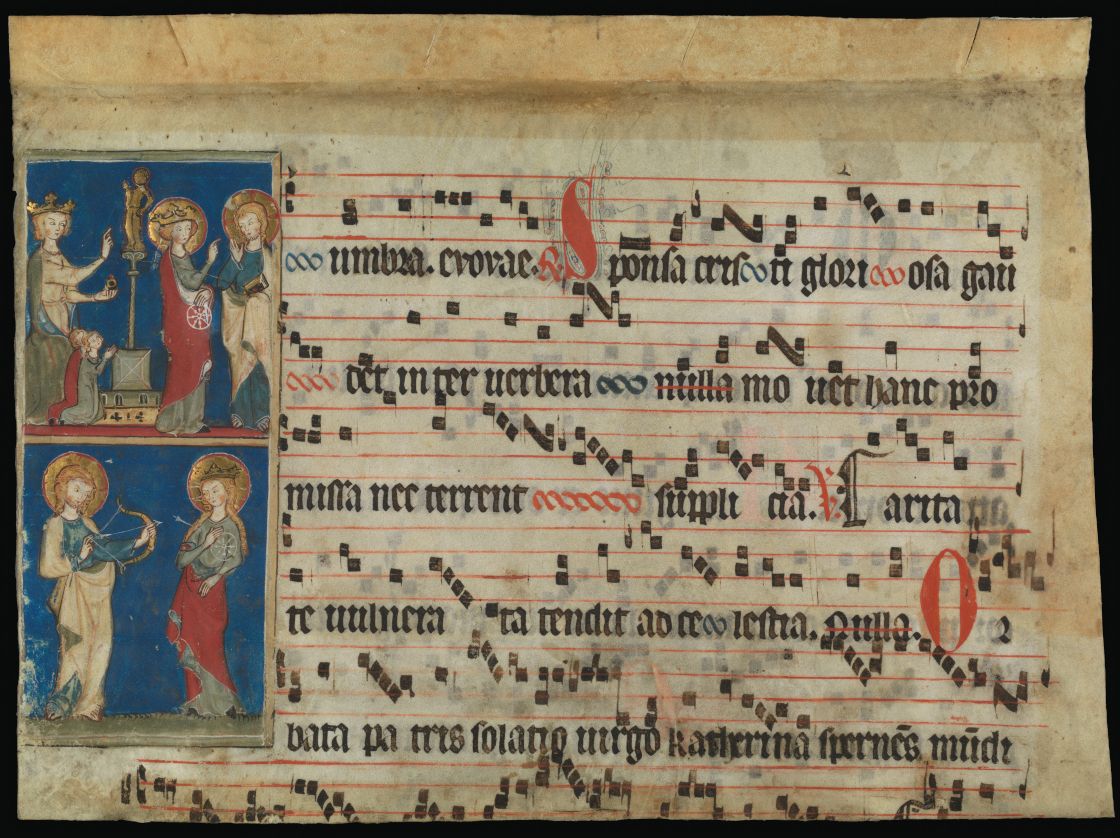 umbra. evovae. R Sponsa cris ti glori osa gau
det in ter verbera nulla mo vet hanc pro
missa nec terrent suppli cia. V Carita
te vulnera ta tendit ad ce lestia. Nulla. Or
bata pa tris solatio virgo katherina spernens mundi